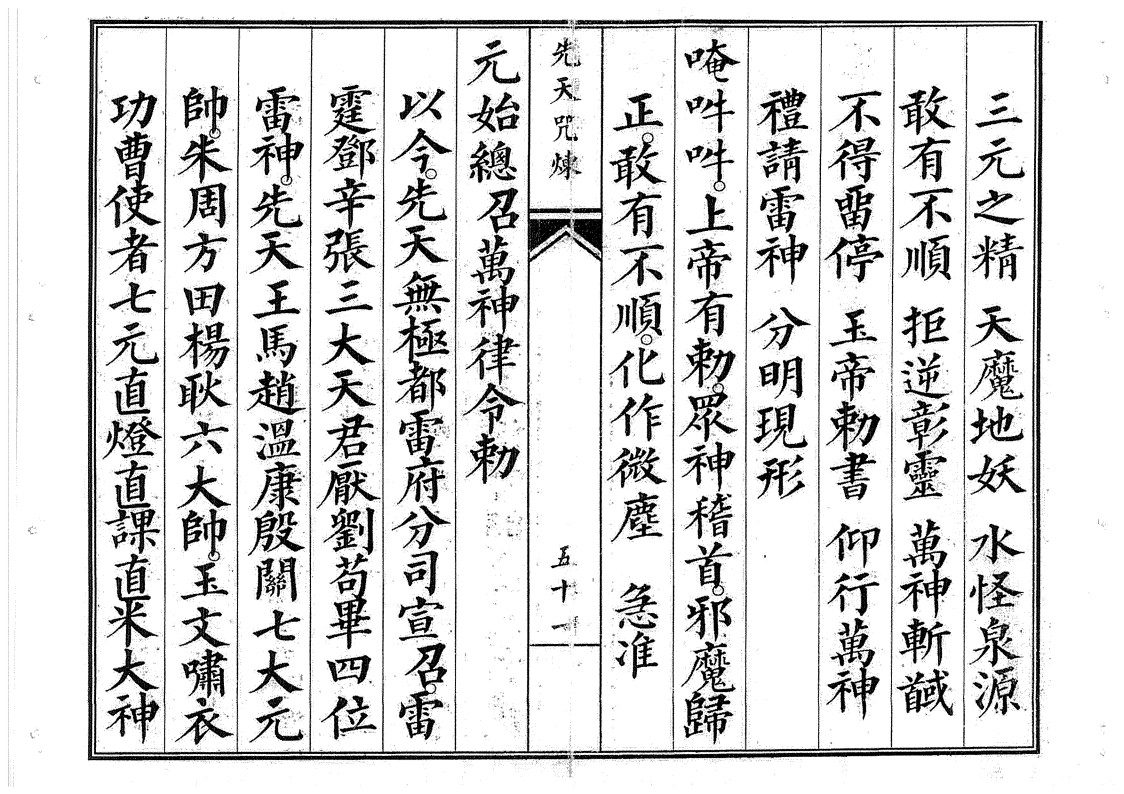 三元之精 天魔地妖 水怪泉源
敢有不順 拒逆彰靈 萬神斬馘
不得畱停 玉帝勅書 仰行萬神
禮請雷神 分明現形
唵吽吽。上帝有勅。眾神稽首。邪魔歸
正。敢有不順。化作微塵 急准
先天咒煉
五十一
元始總召萬神律令勅
以今。先天無極都雷府分司宣召。雷
霆鄧辛張三大天君厭劉苟畢四位
雷神。先天王馬趙溫康殷關七大元
帥。朱周方田楊耿六大帥。玉文嘯衣
功曹使者七元直燈直課直米大神